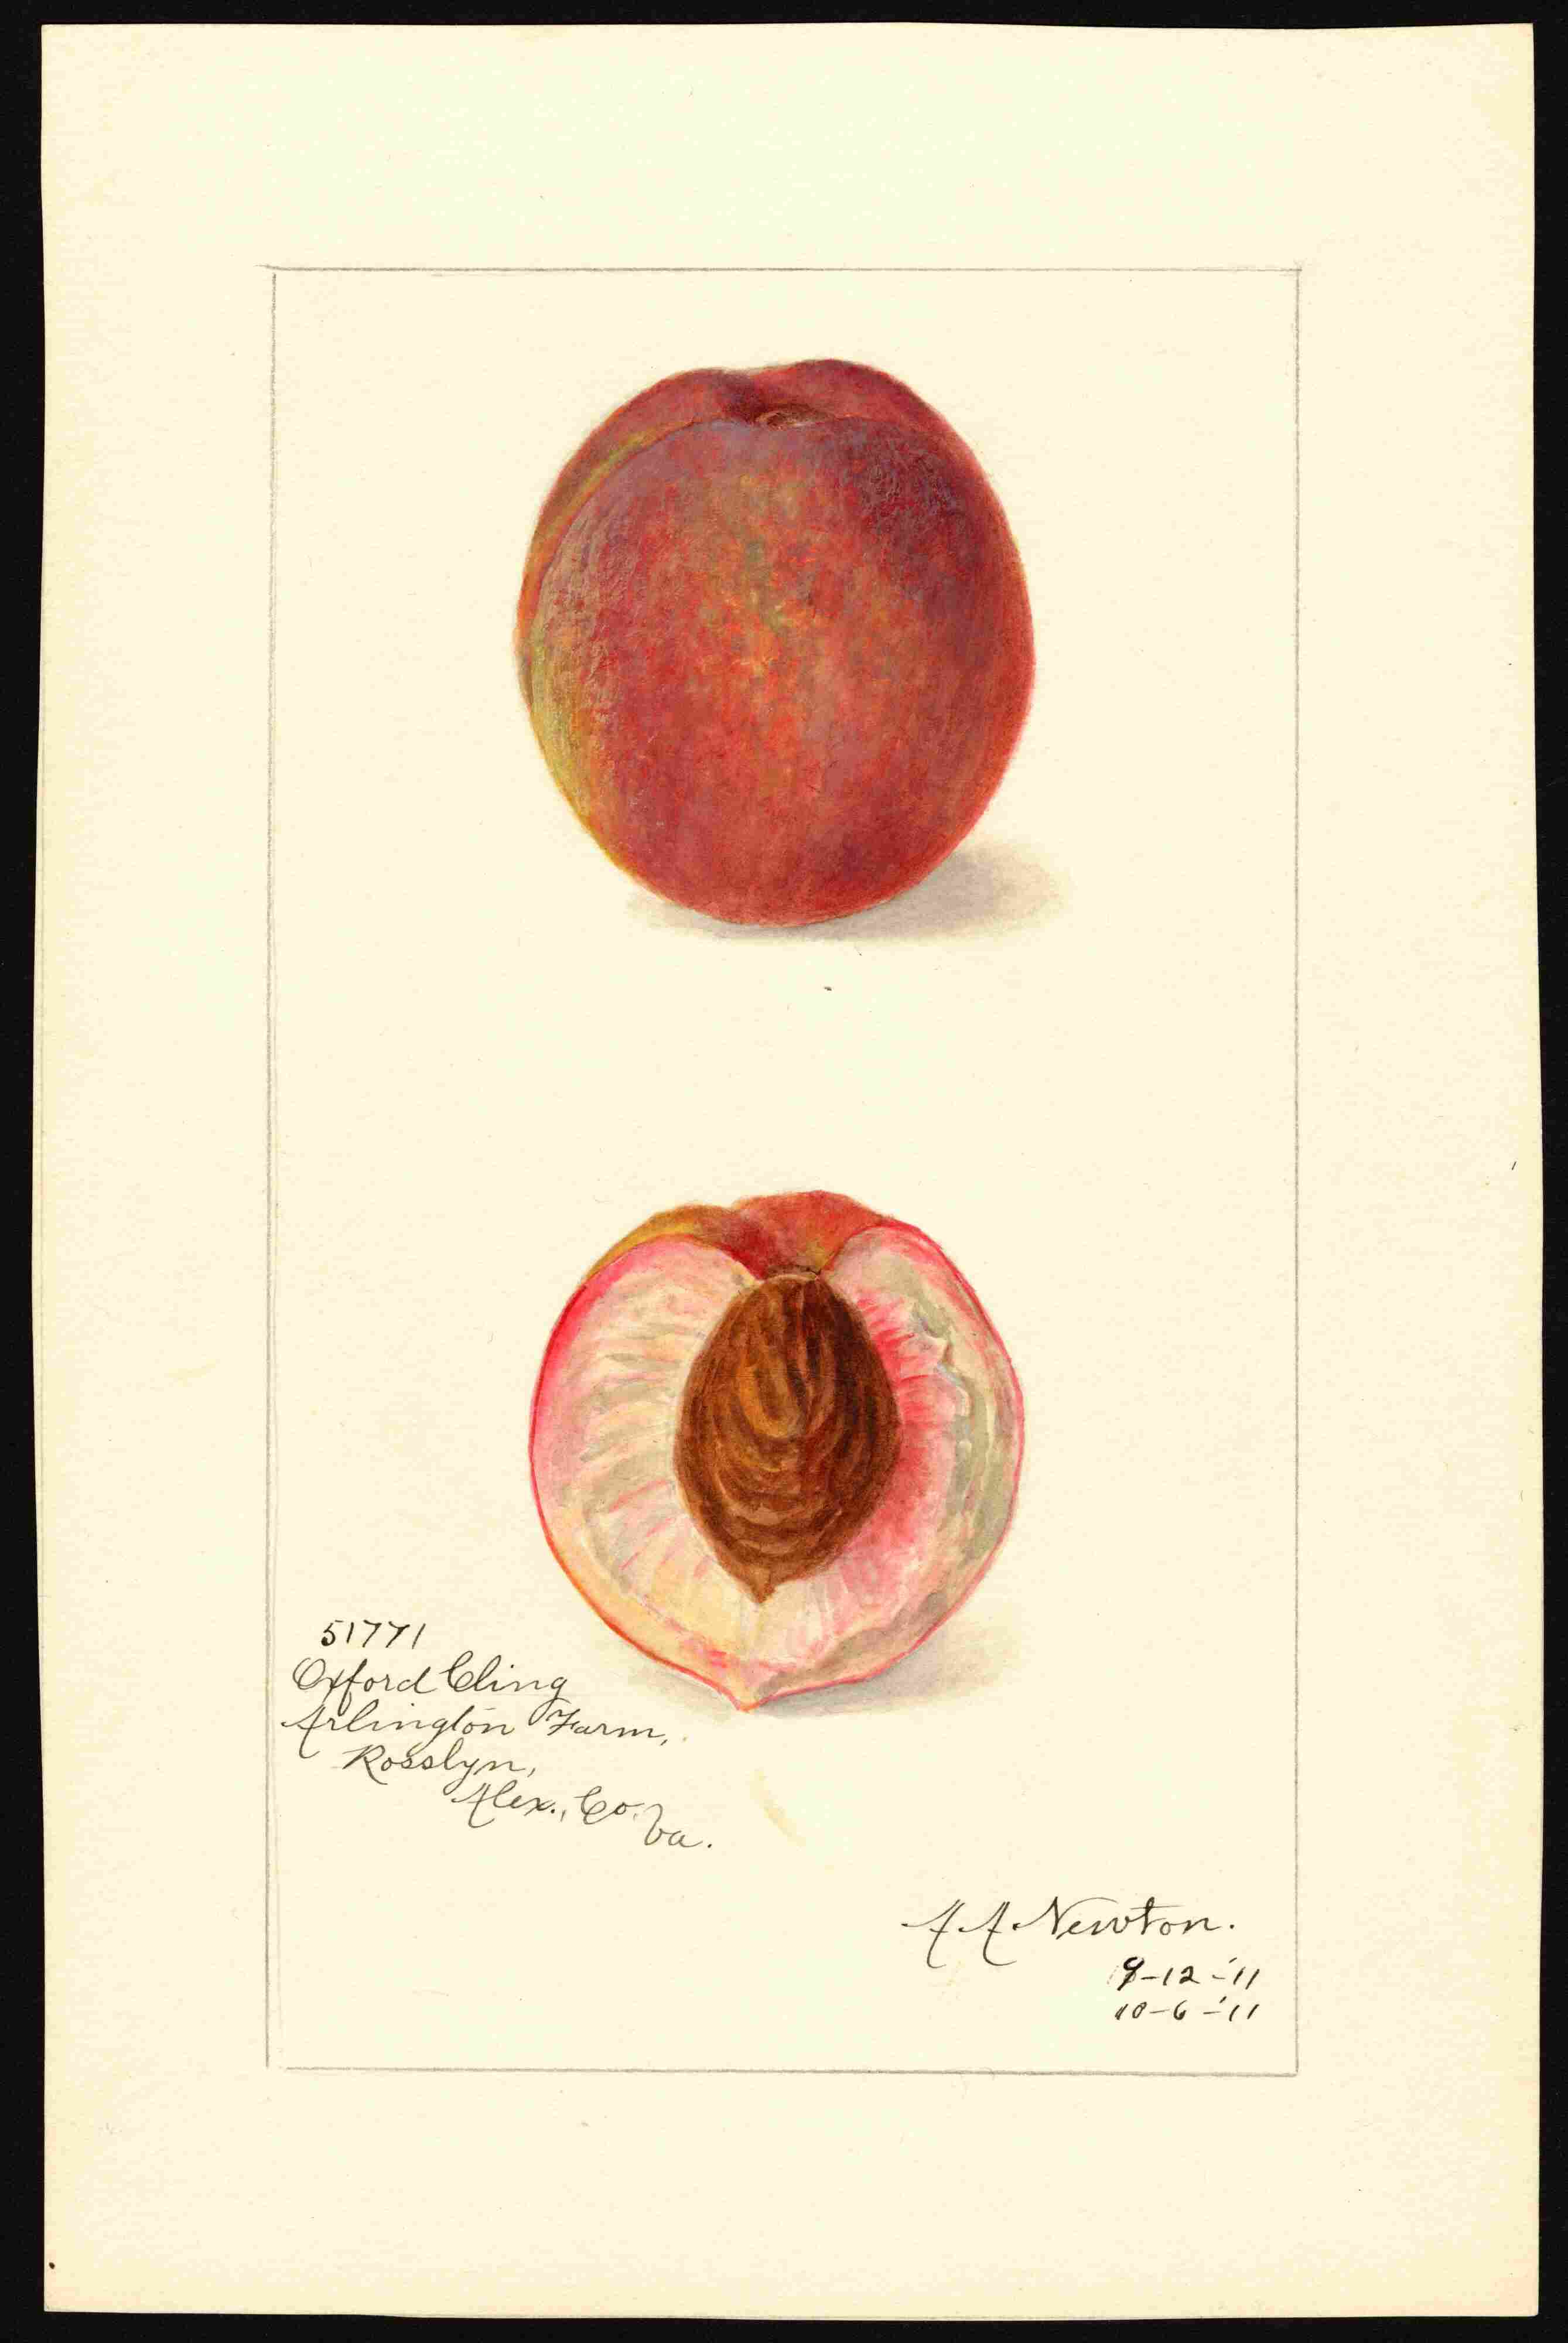 51771
Oxford Cling
Arlington Farm,
Rosslyn,
Alex., Co.
Va.
A A Newton.
9-12-'11
10-6-'11